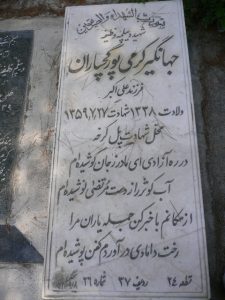 شهید دیپلمه وظیفه
جهانگیر کرمی پور گچیاران
فرزند علی اکبر
ولادت ۱۳۳۸ شهادت ۱۳۵۹٫۷٫۱۷
محل شهادت پل کرخه
در ره آزادی ای مادر ز جان کوشیده ام
آب کوثر را ز دست مرتضی نوشیده ام
از مکانم با خبر کن جمله یاران مرا
رخت دامادی در آوردم کفن پوشیده ام
قطعه ۲۴ ردیف ۳۷ شماره ۲۶